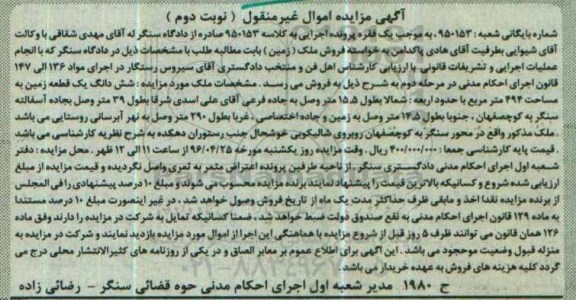 آگهی مزایده اموال غیرمنقول ( نوبت دوم )
شماره بایگانی شعبه : ۹۵۰۱۵۳، به موجب یک فقره پرونده اجرایی به کلاسه ۹۵۰۱۵۳ صادره از دادگاه سنگر له آقای مهدی شقاقی با وکالت
آقای شیوایی بطرفیت آقای هادی پاکدامن به خواسته فروش ملک (زمین ) بابت مطالبه طلب با مشخصات ذیل در دادگاه سنگر که با انجام
عملیات اجرایی و تشریفات قانونی با ارزیابی کارشناس اهل فن و منتخب دادگستری آقای سیروس رستگار در اجرای مواد ۱۳۶ الی ۱۴۷
قانون اجرای احکام مدنی در مرحله دوم به شرح ذیل به فروش می رسد. مشخصات ملک مورد مزایده : شش دانگ یک قطعه زمین به
مساحت ۴۹۴ متر مربع با حدود اربعه : شمالا بطول ۱۵.۵ متر وصل به جاده فرعی آقای علی اسدی شرقا بطول ۳۹ متر وصل بجاده آسفالته
سنگر به کوچصفهان ، جنوبا بطول ۱۴.۵ متر وصل به زمین و جاده اختصاصی ، غربا بطول ۲۹۰ متر وصل به نهر آبرسانی روستایی می باشد
. ملک مذکور واقع در محور سنگر به کوچصفهان روبروی شالیکوبی خوشحال جنب رستوران دهکده به شرح نظریه کارشناسی می باشد
. قیمت پایه کارشناسی جمعا : ۴۰۰/۰۰۰/۰۰۰ ریال . وقت مزایده روز یکشنبه مورخه ۹۶/۰۴/۲۵ از ساعت ۱۱ الی ۱۲ ظهر . محل مزایده : دفتر
شعبه اول اجرای احکام مدنی دادگستری سنگر ، از ناحیه طرفین پرونده اعتراض مثمر به ثمری واصل نگردیده و قیمت مزایده از مبلغ
ارزیابی شده شروع و کسانیکه بالاترین قیمت را پیشنهاد نمایند برنده مزایده محسوب می شوند و مبلغ ۱۰ درصد پیشنهادی را فی المجلس
از برنده مزایده نقدا اخذ و مابقی ظرف حداکثر مدت یک ماه از تاریخ فروش وصول خواهد شد ، در غیر اینصورت مبلغ ۱۰ درصد مستندا
به ماده ۱۲۹ قانون اجرای احکام مدنی به نفع صندوق دولت ضبط خواهد شد . ضمنا کسانیکه تمایل به شرکت در مزایده را دارند وفق ماده
۱۲۶ همان قانون می توانند ظرف ۵ روز قبل از شروع مزایده با هماهنگی این اجرا از اموال مورد مزایده بازدید نمایند و شرکت در مزایده به
منزله قبول وضعیت موجود می باشد . این آگهی برای اطلاع عموم بر معابر الصاق و در یکی از روزنامه های کثیرالانتشار محلی درج می
گردد کلیه هزینه های فروش به عهده خریدار می باشد .
ح ۱۹۸۰ مدیر شعبه اول اجرای احکام مدنی حوه قضائی سنگر - رضائی زاده